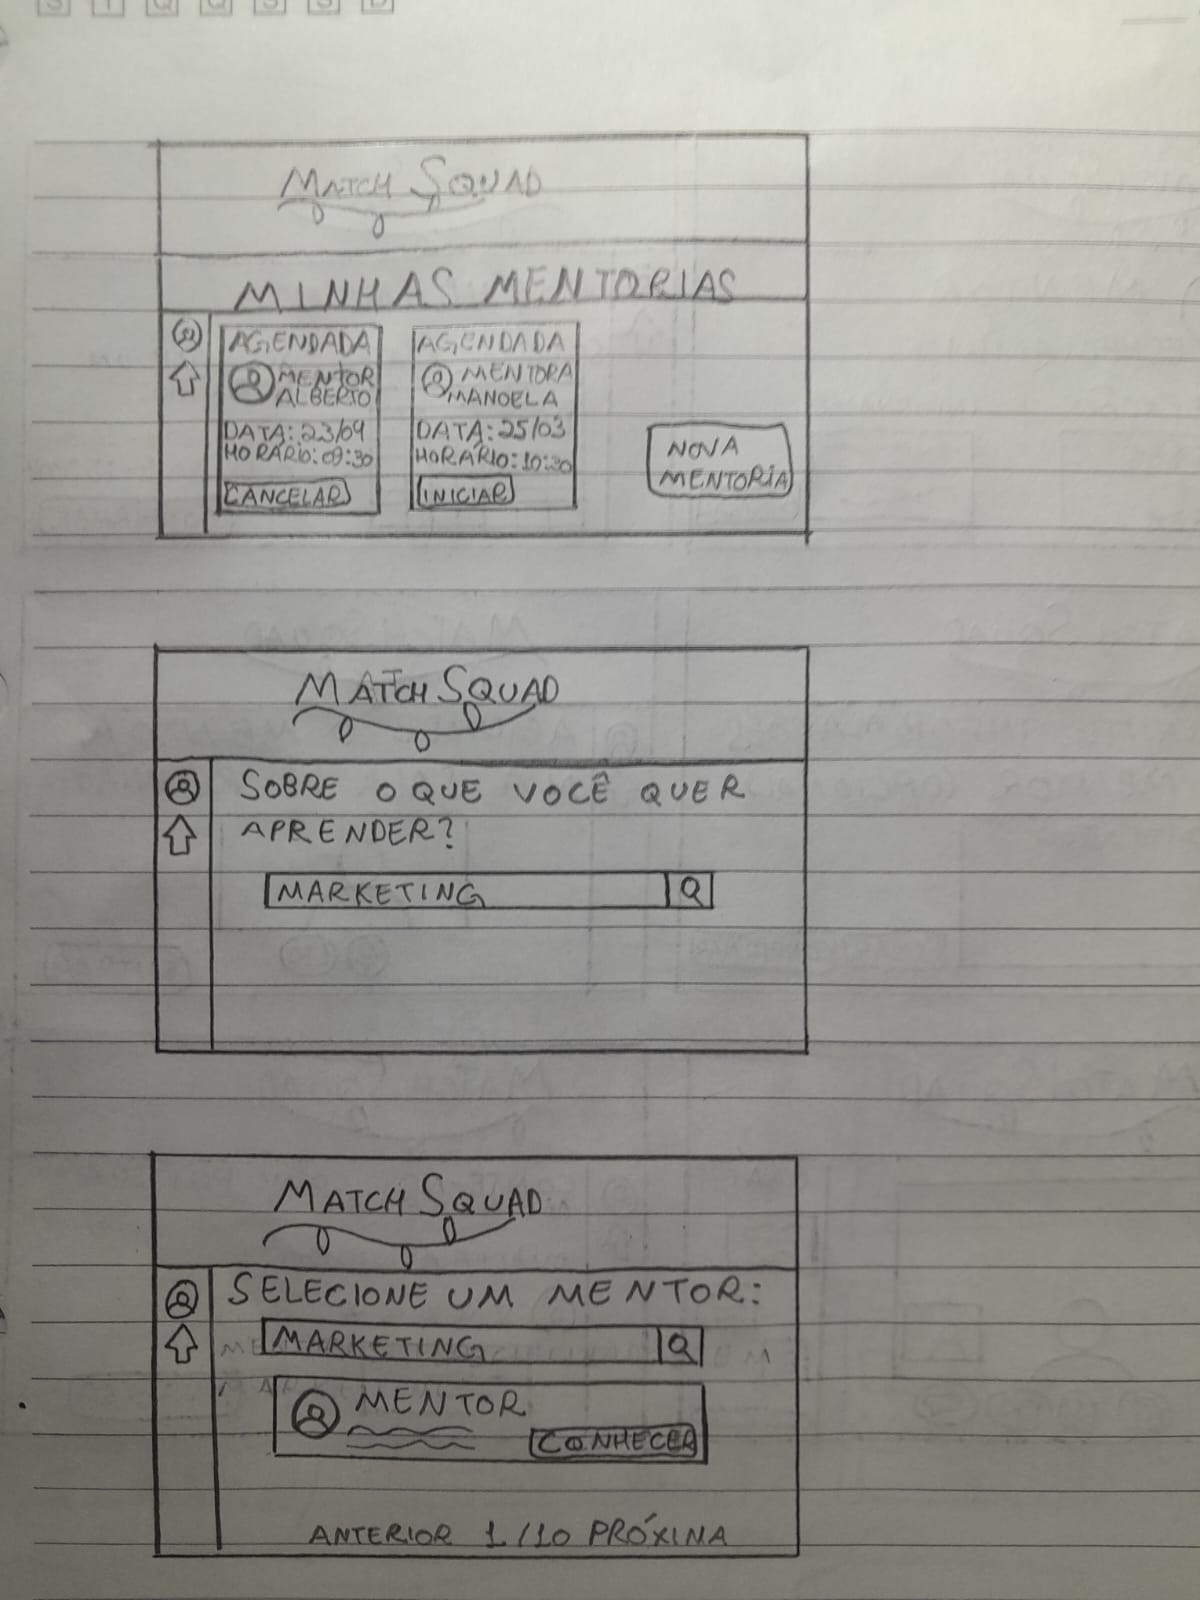 S T Q Q S S D
MATCH SQUAD
MINHAS MENTORIAS
AGENDADA
MENTOR
ALBERTO
DATA: 23/09
HORÁRIO: 09:30
CANCELAR
AGENDADA
MENTORA
MANOELA
DATA: 25/03
HORÁRIO: 10:30
INICIAR
NOVA
MENTORIA
MATCH SQUAD
SOBRE O QUE VOCÊ QUER
APRENDER?
MARKETING
MATCH SQUAD
SELECIONE UM MENTOR:
MARKETING
MENTOR
CONHECER
ANTERIOR 1/10 PRÓXINA